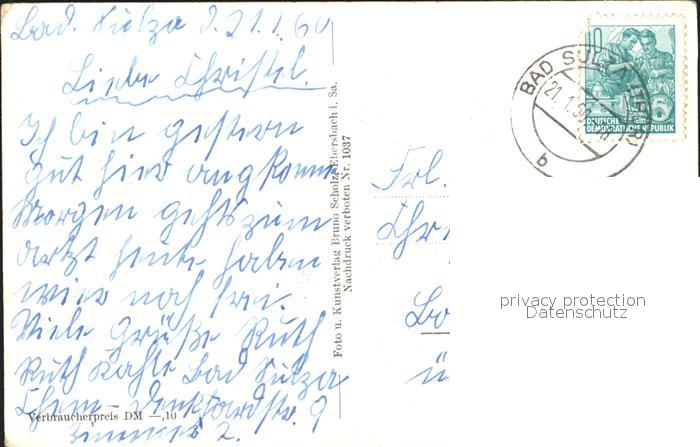 Bad. Sulza d. 21.1.60
Liebe Christel.
Ich bin gestern
gut hier angkomm
Morgen gehts zum
Arzt heute haben
wier noch frei.
Viele Grüße Ruth
Ruth Kahle Bad Sulza
str. 9
Zimmer 2.
Verbraucherpreis DM —,10
Foto u. Kunstverlag Bruno Scholz, Ebersbach i. Sa.
Nachdruck verboten Nr. 1037
BAD SULZA (THÜR)
21.1.60
b
10
DEUTSCHE
DEMOKRATISCHE REPUBLIK
Frl.
Chr
privacy protection
Datenschutz
ü